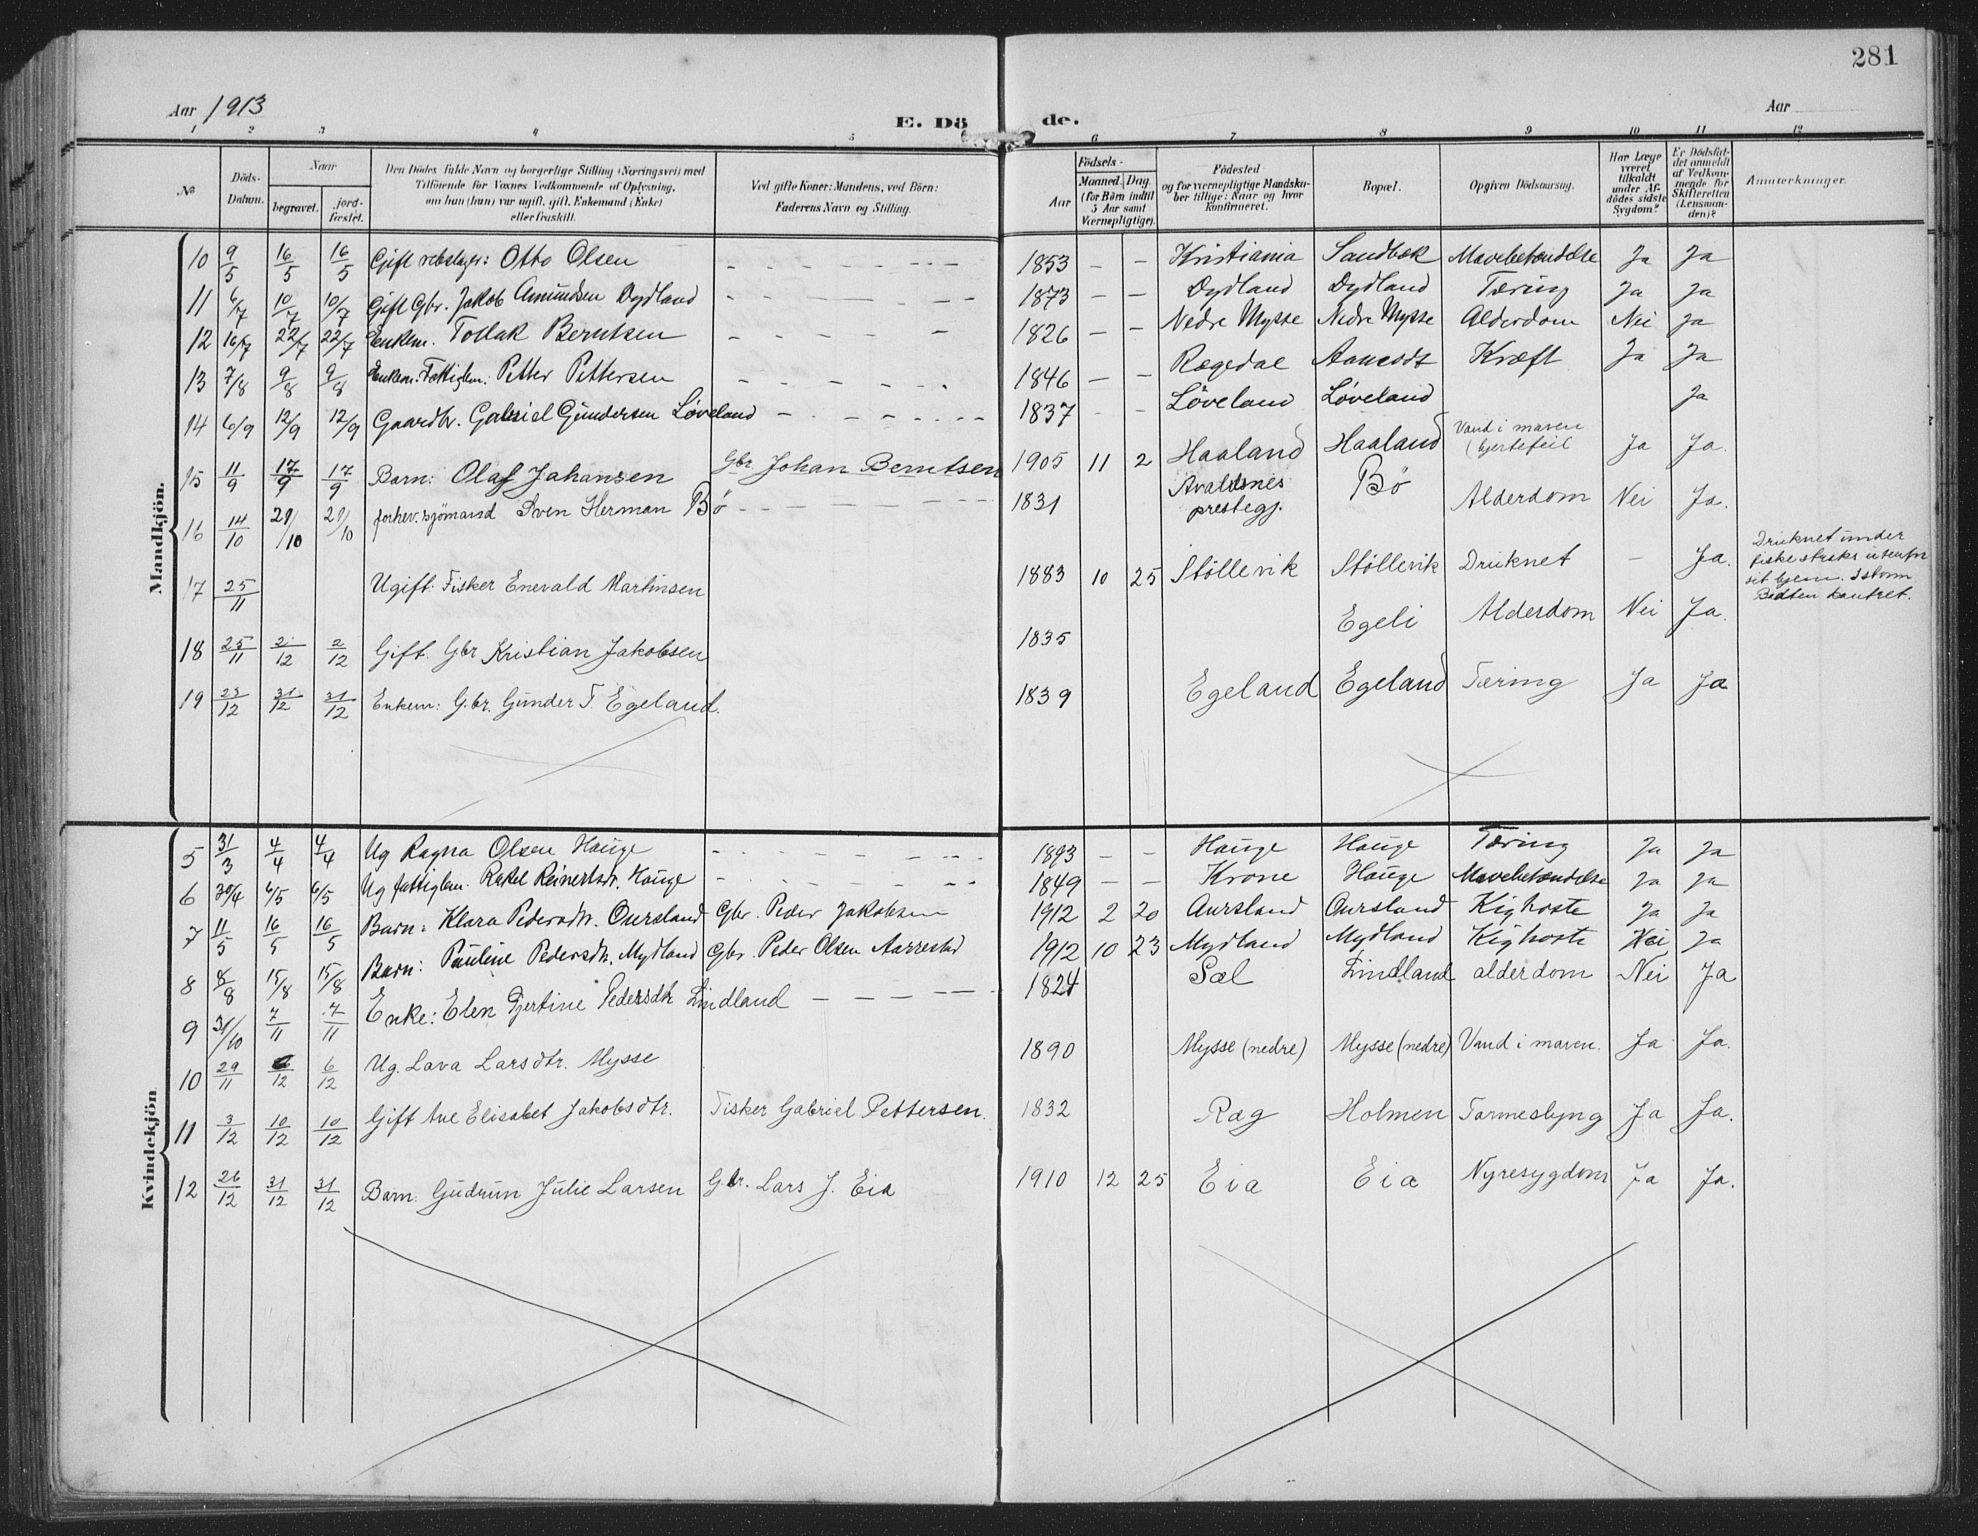 281
Aar 1913
E. Dö de.
Aar
1 2 3 4 5 6 6 7 8 9 10 11 12
№
Döds-Datum.
Naar
begravet.
jord-fæstet.
Den Dödes fulde Navn og borgerlige Stilling (Næringsvei) med
Tilföiende for Voxnes Vedkommende af Oplysning,
om han (hun) var ugift, gift, Enkemand (Enke)
eller fraskilt.
Ved gifte Koner: Mandens, ved Börn:
Faderens Navn og Stilling.
Födsels-
Aar
Maaned. Dag.
(for Börn indtil
5 Aar samt
Værnepligtige).
Födested
og for værnepligtige Mandskaber tillige: Naar og hvor konfirmeret.
Bopæl.
Opgiven Dödsaarsag.
Har Læge været tilkaldt under Afdödes sidste Sygdom?
Er Dödsfaldet anmeldt af Vedkommende for Skifteretten (Lensmanden)?
Anmærkninger.
Mandkjön.
10 9/5 16/5 16/5 Gift rebslager: Otto Olsen - - - 1853 - - Kristiania Sandbæk Mavebetændelse Ja Ja
11 6/7 10/7 10/7 Gift Gbr. Jakob Amundsen Dydland - - - 1873 - - Dydland Dydland Tæring Ja Ja
12 16/7 22/7 22/7 Enkem. Tollak Berntsen - - - 1826 - - Nedre Mysse Nedre Mysse Alderdom Nei Ja
13 7/8 9/8 9/8 Enkem. Fattiglem. Petter Pettersen - - - 1846 - - Rægedal Kræft Ja Ja
14 6/9 12/9 12/9 Gaardbr. Gabriel Gundersen Løveland - - - 1837 - - Løveland Løveland Ja
15 11/9 17/9 17/9 Barn: Olaf Johansen Gbr. Johan Berntsen 1905 11 2 Haaland Haaland Vand i maven (hjertefeil Ja Ja.
16 14/10 21/10 21/10 forhev. sjömand Sven Herman Bø - - - 1831 Avaldsnes prestegj. Bø Alderdom Nei Ja.
17 25/11 Ugift. Fisker Enevald Martinsen 1883 10 25 Støllevik Støllevik Druknet - Ja. Druknet under
fiske straks utenfor
sit hjem. I storm
Baaten kantret.
18 25/11 2/12 2/12 Gift. Gbr Kristian Jakobsen 1835 Egeli Alderdom Nei Ja.
19 23/12 31/12 31/12 Enkem: G.br. Gunder T. Egeland. 1839 Egeland Egeland Tæring Ja Ja
Kvindekjön
5 31/3 4/4 4/4 Ug Ragna Olsen Hauge - - - 1893 - - Hauge Hauge Tæring Ja Ja
6 30/4 6/5 6/5 Ug fattiglem. Rakel Reinertsdr. Hauge - - - 1849 - - Krone Hauge Mavebetændelse Ja Ja
7 11/5 16/5 16/5 Barn: Klara Pedersdtr. Oursland Gbr. Peder Jakobsen 1912 2 20 Aursland Oursland Kighoste Ja Ja
8 8/8 15/8 15/8 Barn: Pauline Pedersdtr. Mydland Gbr. Peder Olsen Aarrestad 1912 10 23 Mydland Mydland Kighoste Nei Ja
9 31/10 7/11 7/11 Enke: Elen Gjertine Pedersdtr Lindland - - - 1824 Sæl Lindland alderdom Nei Ja
10 29/11 6/12 6/12 Ug. Lava Larsdtr. Mysse 1890 Mysse (nedre) Mysse (nedre) Vand i maven. Ja Ja.
11 3/12 10/12 10/12 Gift Ane Elisabet Jakobsdtr. Fisker Gabriel Pettersen. 1832 Ræg Holmen Tarmeslyng Ja Ja.
12 26/12 31/12 31/12 Barn: Gudrun Julie Larsen Gbr. Lars J. Eia 1910 12 25 Eia Eia Nyresygdom Ja Ja.